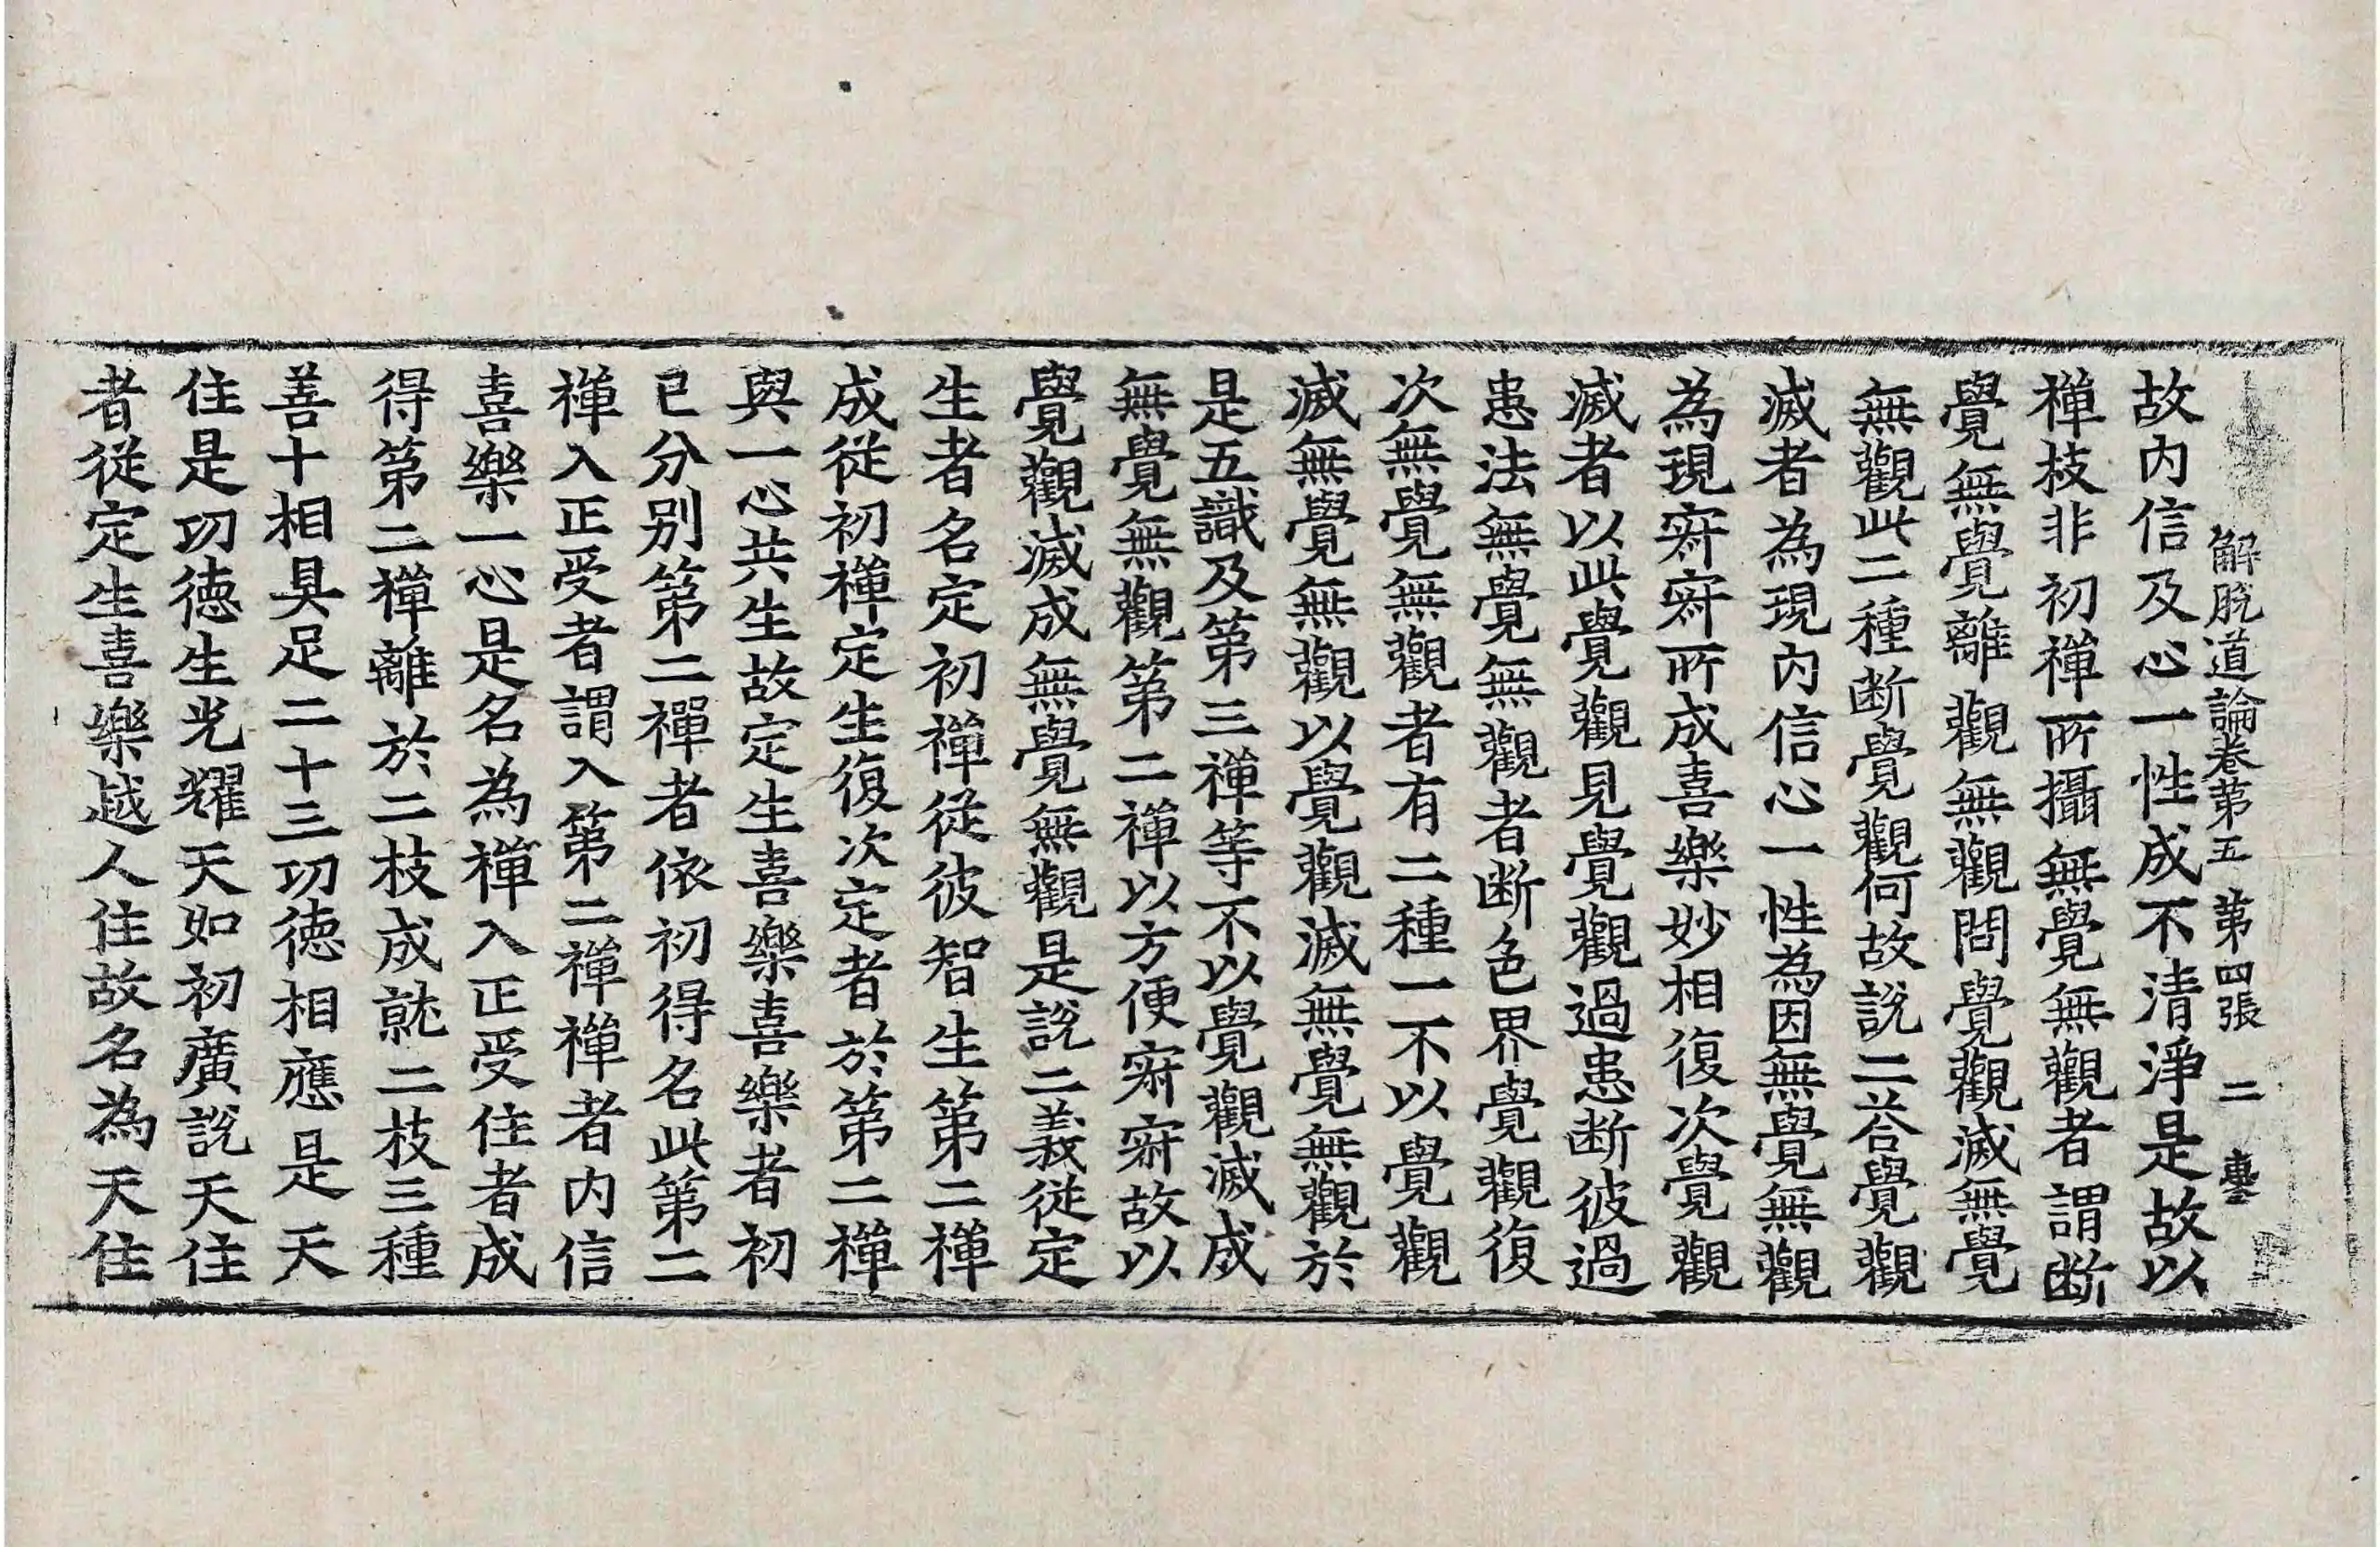 解脫道論卷第五　第四張　二　
故内信及心一性成不清淨是故以
禪枝非初禪所攝無覺無觀者謂斷
覺無覺離觀無觀問覺觀滅無覺
無觀此二種断覺觀何故説二荅覺觀
滅者為現内信心一性為因無覺無觀
為現寂寂所成喜樂妙相復次覺觀
滅者以此覺觀見覺觀過患断彼過
患法無覺無觀者断色界覺觀復
次無覺無觀者有二種一不以覺觀
滅無覺無觀以覺觀滅無覺無觀於
是五識及第三禪等不以覺觀滅成
無覺無觀第二禪以方便寂寂故以
覺觀滅成無覺無觀是説二義從定
生者名定初禪從彼智生第二禪
成從初禪定生復次定者於第二禪
與一心共生故定生喜樂喜樂者初
已分别第二禪者依初得名此第二
禪入正受者謂入第二禪禪者内信
喜樂一心是名為禪入正受住者成
得第二禪離於二枝成就二枝三種
善十相具足二十三功徳相應是天
住是功徳生光耀天如初廣説天住
者從定生喜樂越人住故名為天住